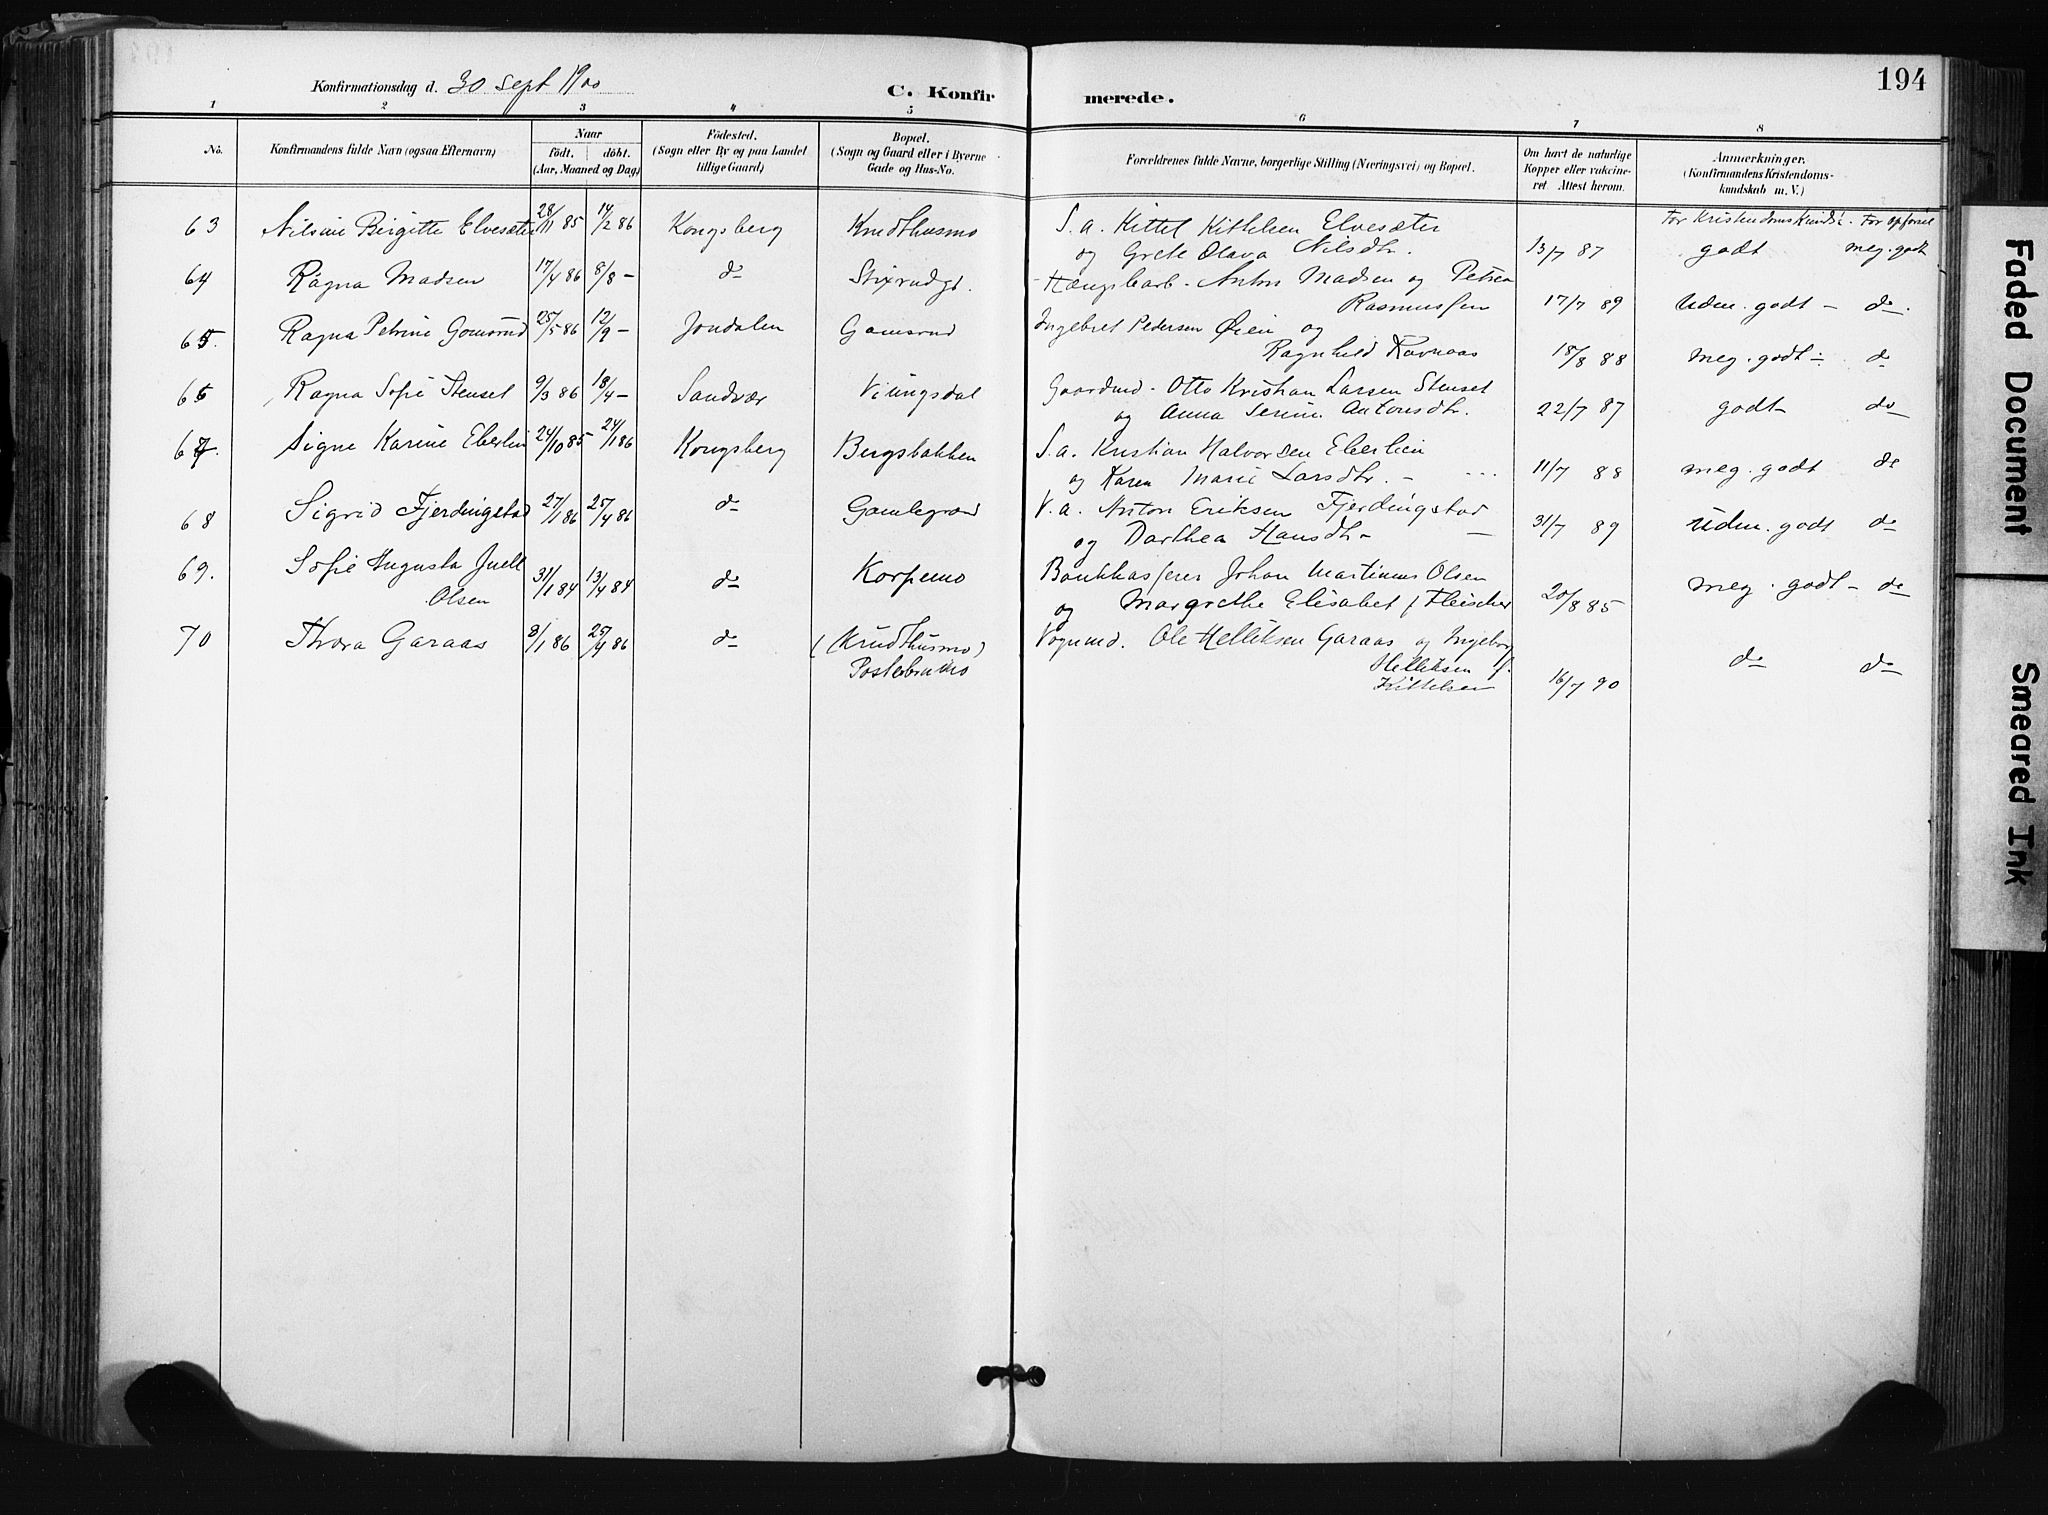 194
Konfirmationsdag d. 30 Sept 1900
C. Konfirmerede.
1 2 3 4 5 6 7 8
No.
Konfirmandens fulde Navn (ogsaa Efternavn)
Naar
födt. döbt.
(Aar, Maaned og Dag)
Födested.
(Sogn eller By og paa Landet
tillige Gaard)
Bopæl.
(Sogn og Gaard eller i Byerne
Gade og Hus-No.
Forældrenes fulde Navne, borgerlige Stilling (Næringsvei) og Bopæl.
Om havt de naturlige
Kopper eller vakcine-
ret Attest herom.
Anmærkninger.
(Konfirmandens Kristendoms-
kundskab m. V.)
For Kristendomskundsk. For opförsel
63 Nilsine Birgitte Elvesæter 28/11 85 14/2 86 Kongsberg Knudthusmo S. a. Kittel Kittelsen Elvesæter
og Grete Olava Nilsdtr. 13/7 87 godt meg. godt
64 Ragna Madsen 17/4 86 8/8 - do Stixrudgt. Hængslearb. Anton Madsen og Petrea
Rasmussen 17/7 89 Udm. godt - do.
65 Ragna Petrine Gomsrud 25/5 86 12/9 - Jondalen Gamsrud Ingebret Pedersen Øien og
Ragnhild Ravnaas 18/8 88 meg. godt - do
66 Ragna Sofie Stenset 9/3 86 18/4 - Sandvær Viungsdal Gaardmd. Otto Kristian Larsen Stenset
og Anna Serine Antonsdtr. 22/7 87 godt do
67. Signe Karine Eberlin 24/10 85 24/1 86 Kongsberg Bergsbakken S. a. Kristian Halvorsen Eberlein
og Karen Marie Larsdtr. - 11/7 88 meg. godt do
68 Sigrid Fjerdingstad 27/1 86 25/4 86 do Gamlegrænd V. a. Anton Eriksen Fjerdingstad
og Dorthea Hansdtr - 31/7 89 Udm. godt do
69. Sofie Augusta Juell
Olsen 31/1 84 13/4 84 do Korpemo Bankkasserer Johan Martinus Olsen
og Margrethe Elisabet f Fleischer 20/8 85 meg. godt - do
70 Thora Garaas 8/1 86 25/4 86 do (Knudthusmo) Vognmd. Ole Helliksen Garaas og Ingeborg
Helliksen f.
Kittelsen 16/7 90 do do
Faded Document
Smeared Ink